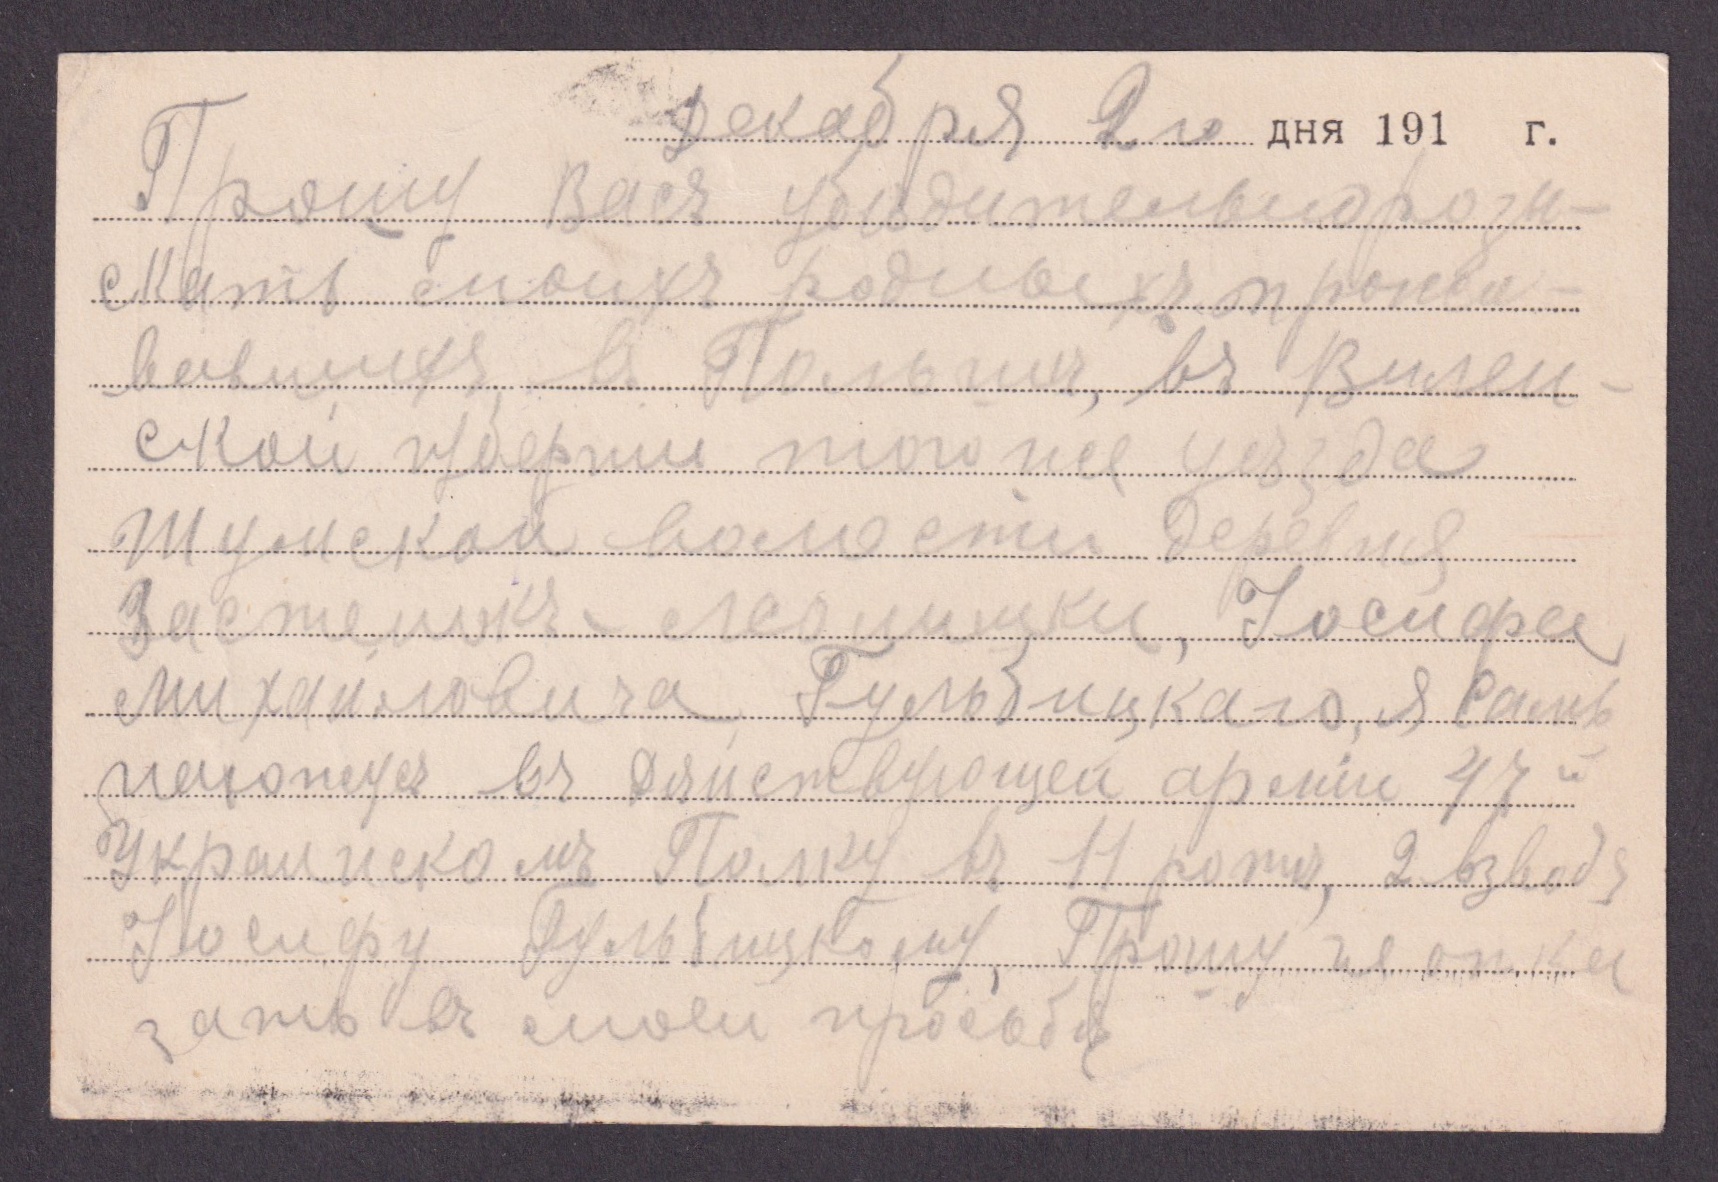 Декабря 2го дня 191 г.
Прошу Васъ убѣдительно розы-
скать моихъ родныхъ прожи-
вавшихъ въ Польшѣ, въ Вилен-
ской губерни того же уѣзда
Шумской волости деревня
Застенокъ-, Іосифа
Михайловича Гульбицкаго, я самъ
нахожусъ въ дѣйствующей арміи 47й
Украинскомъ Полку въ 11 ротѣ, 2 взводѣ
Іосифу Гульбицкому, Прошу не отка
зать въ моей просьбѣ